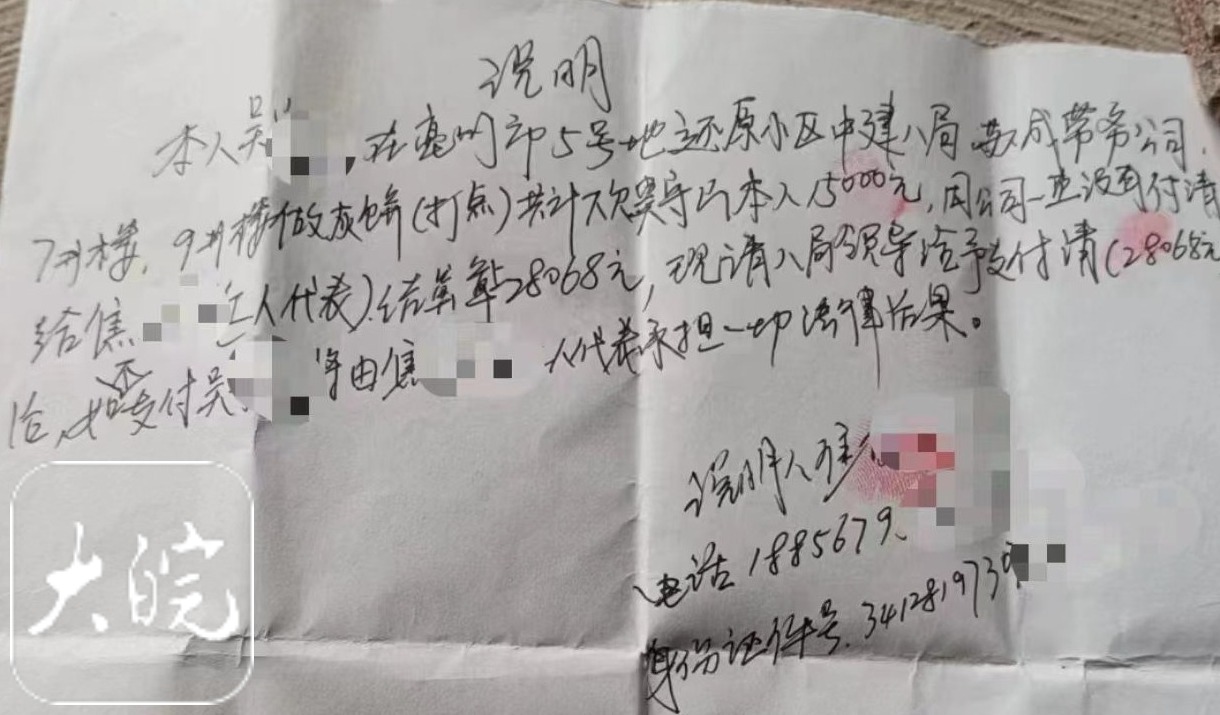 说明
本人吴 ,在亳州市5号地还原小区中建八局 公司,
7#楼,9#楼做灰饼(打点)共计欠 本人15000元,因公司一直没有付清
给焦 工人代表)结算单28068元,现请八局领导给予支付清(28068元
后,如还支付吴 等由焦 人代表承担一切法律后果。
说明人
电话1885679
身份证件号.341281973
大皖